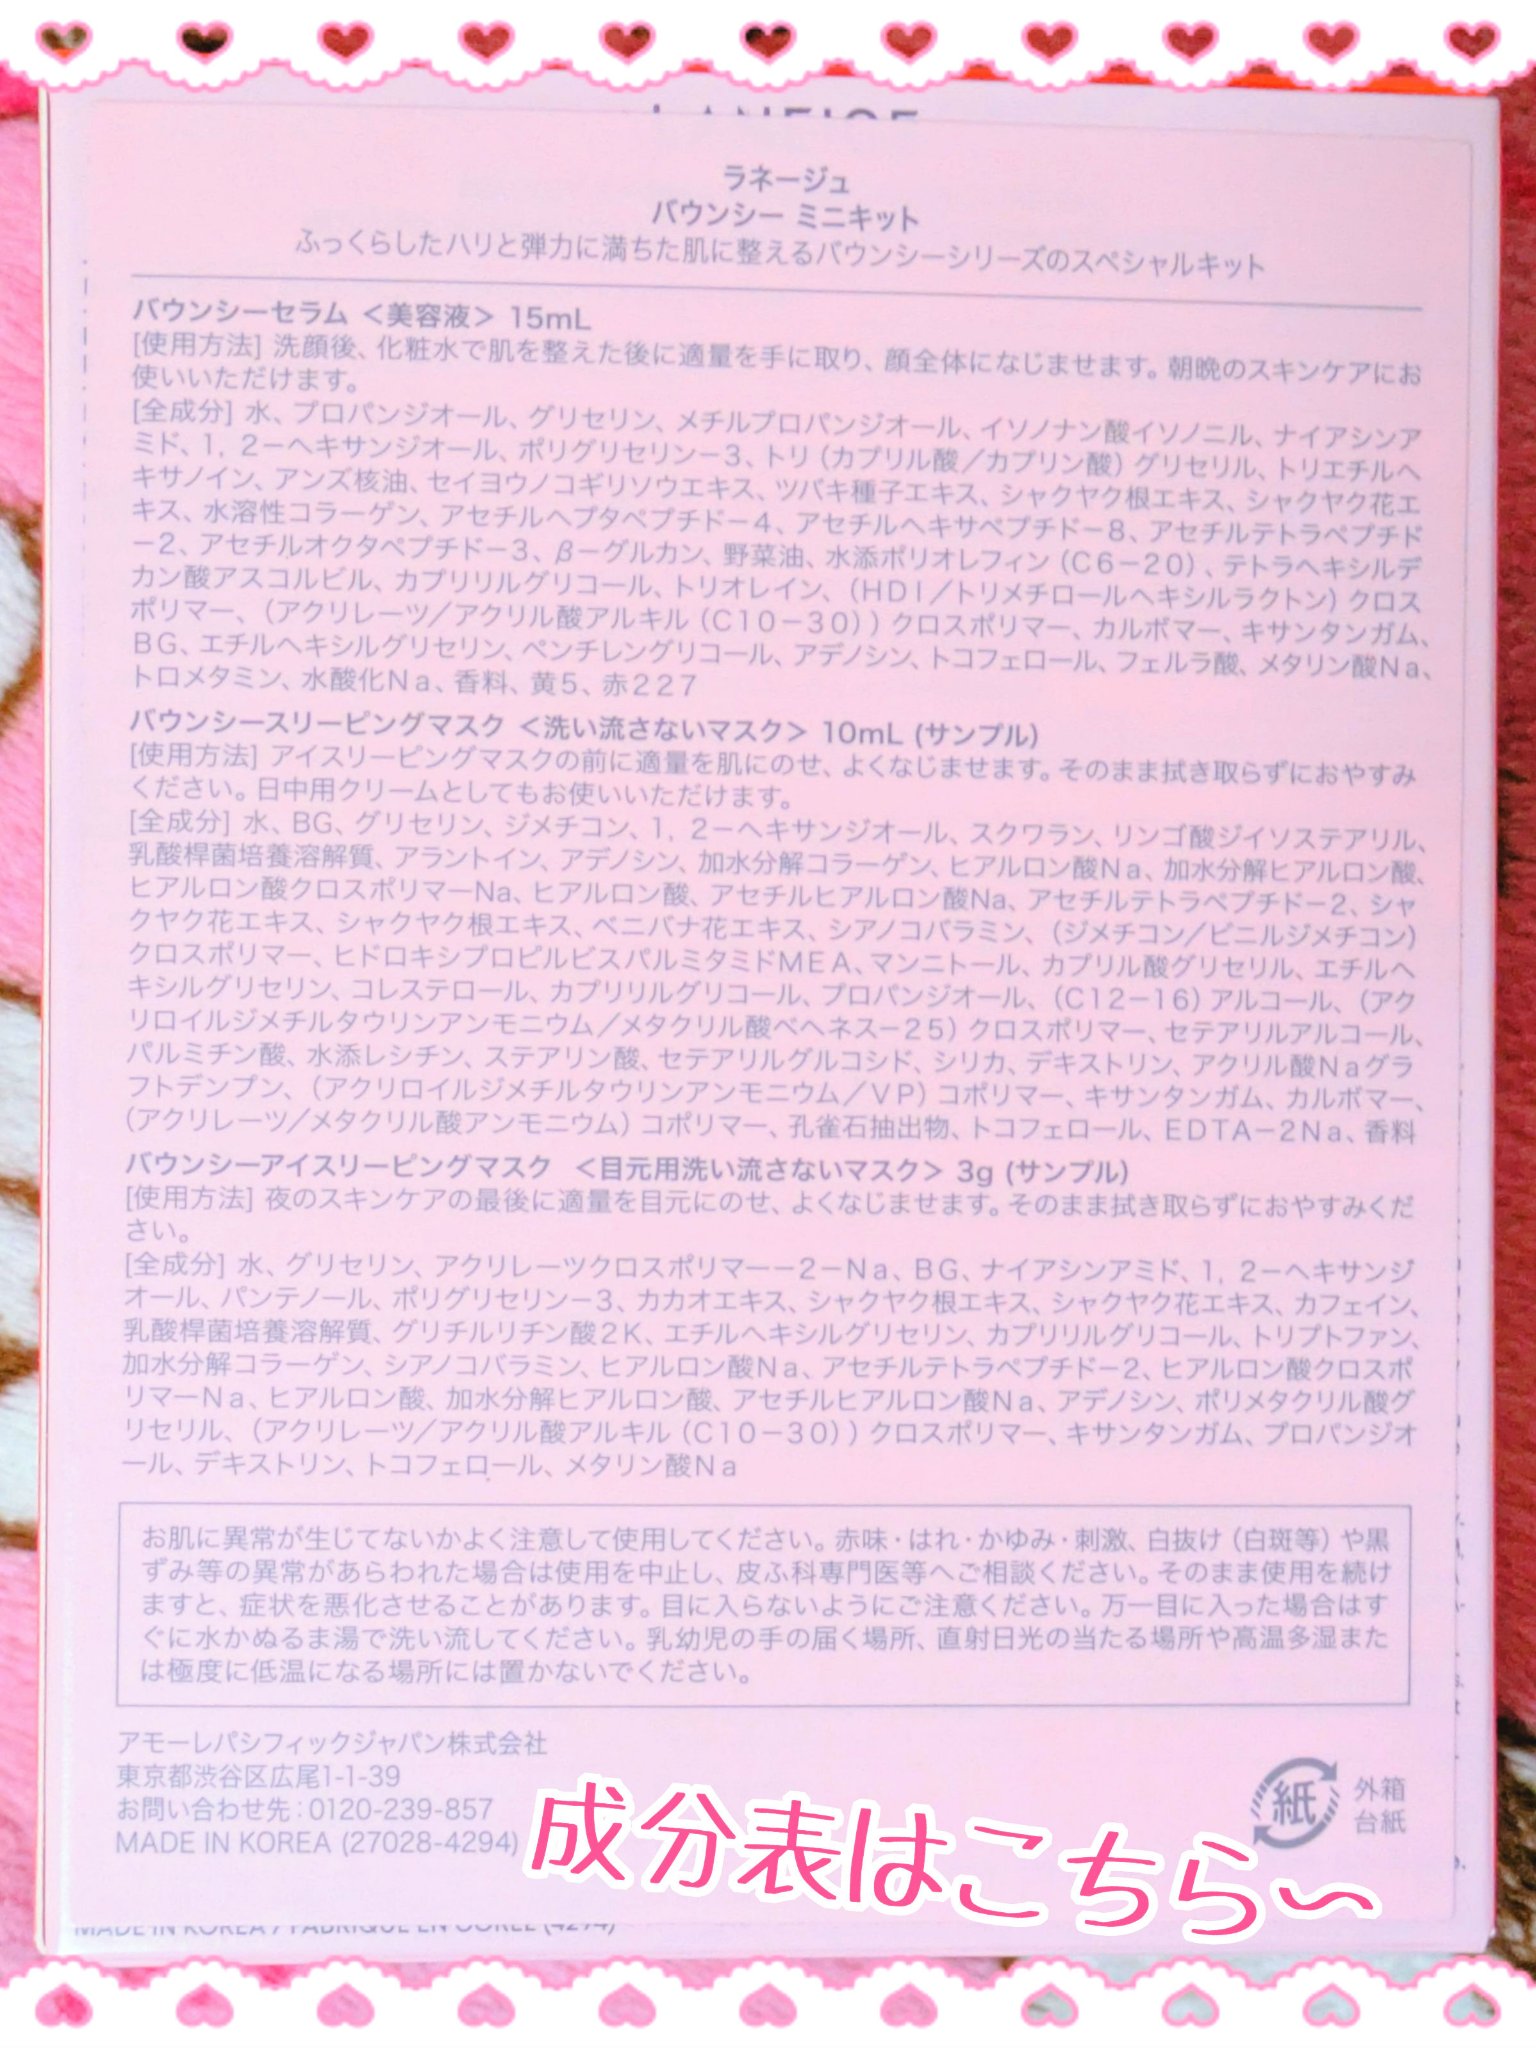 ラネージュ
バウンシー ミニキット
ふっくらしたハリと弾力に満ちた肌に整えるバウンシーシリーズのスペシャルキット
バウンシーセラム ＜美容液＞ 15mL
[使用方法] 洗顔後、化粧水で肌を整えた後に適量を手に取り、顔全体になじませます。朝晩のスキンケアにお
使いいただけます。
[全成分] 水、プロパンジオール、グリセリン、メチルプロパンジオール、イソノナン酸イソノニル、ナイアシンア
ミド、1，2－ヘキサンジオール、ポリグリセリン－3、トリ（カプリル酸／カプリン酸）グリセリル、トリエチルヘ
キサノイン、アンズ核油、セイヨウノコギリソウエキス、ツバキ種子エキス、シャクヤク根エキス、シャクヤク花エ
キス、水溶性コラーゲン、アセチルヘプタペプチド－4、アセチルヘキサペプチド－8、アセチルテトラペプチド
－2、アセチルオクタペプチド－3、β－グルカン、野菜油、水添ポリオレフィン（C6－20）、テトラヘキシルデ
カン酸アスコルビル、カプリリルグリコール、トリオレイン、（HDI／トリメチロールヘキシルラクトン）クロス
ポリマー、（アクリレーツ／アクリル酸アルキル（C10－30））クロスポリマー、カルボマー、キサンタンガム、
BG、エチルヘキシルグリセリン、ペンチレングリコール、アデノシン、トコフェロール、フェルラ酸、メタリン酸Na、
トロメタミン、水酸化Na、香料、黄5、赤227
バウンシースリーピングマスク ＜洗い流さないマスク＞ 10mL (サンプル)
[使用方法] アイスリーピングマスクの前に適量を肌にのせ、よくなじませます。そのまま拭き取らずにおやすみ
ください。日中用クリームとしてもお使いいただけます。
[全成分] 水、BG、グリセリン、ジメチコン、1，2－ヘキサンジオール、スクワラン、リンゴ酸ジイソステアリル、
乳酸桿菌培養溶解質、アラントイン、アデノシン、加水分解コラーゲン、ヒアルロン酸Na、加水分解ヒアルロン酸、
ヒアルロン酸クロスポリマーNa、ヒアルロン酸、アセチルヒアルロン酸Na、アセチルテトラペプチド－2、シャ
クヤク花エキス、シャクヤク根エキス、ベニバナ花エキス、シアノコバラミン、（ジメチコン／ビニルジメチコン）
クロスポリマー、ヒドロキシプロピルビスパルミタミドMEA、マンニトール、カプリル酸グリセリル、エチルヘ
キシルグリセリン、コレステロール、カプリリルグリコール、プロパンジオール、（C12－16）アルコール、（アク
リロイルジメチルタウリンアンモニウム／メタクリル酸ベヘネス－25）クロスポリマー、セテアリルアルコール、
パルミチン酸、水添レシチン、ステアリン酸、セテアリルグルコシド、シリカ、デキストリン、アクリル酸Naグラ
フトデンプン、（アクリロイルジメチルタウリンアンモニウム／VP）コポリマー、キサンタンガム、カルボマー、
（アクリレーツ／メタクリル酸アンモニウム）コポリマー、孔雀石抽出物、トコフェロール、EDTA－2Na、香料
バウンシーアイスリーピングマスク ＜目元用洗い流さないマスク＞ 3g (サンプル)
[使用方法] 夜のスキンケアの最後に適量を目元にのせ、よくなじませます。そのまま拭き取らずにおやすみくだ
さい。
[全成分] 水、グリセリン、アクリレーツクロスポリマー－2－Na、BG、ナイアシンアミド、1，2－ヘキサンジ
オール、パンテノール、ポリグリセリン－3、カカオエキス、シャクヤク根エキス、シャクヤク花エキス、カフェイン、
乳酸桿菌培養溶解質、グリチルリチン酸2K、エチルヘキシルグリセリン、カプリリルグリコール、トリプトファン、
加水分解コラーゲン、シアノコバラミン、ヒアルロン酸Na、アセチルテトラペプチド－2、ヒアルロン酸クロスポ
リマーNa、ヒアルロン酸、加水分解ヒアルロン酸、アセチルヒアルロン酸Na、アデノシン、ポリメタクリル酸グ
リセリル、（アクリレーツ／アクリル酸アルキル（C10－30））クロスポリマー、キサンタンガム、プロパンジオ
ール、デキストリン、トコフェロール、メタリン酸Na
お肌に異常が生じてないかよく注意して使用してください。赤味・はれ・かゆみ・刺激、白抜け（白斑等）や黒
ずみ等の異常があらわれた場合は使用を中止し、皮ふ科専門医等へご相談ください。そのまま使用を続け
ますと、症状を悪化させることがあります。目に入らないようにご注意ください。万一目に入った場合はす
ぐに水かぬるま湯で洗い流してください。乳幼児の手の届く場所、直射日光の当たる場所や高温多湿また
は極度に低温になる場所には置かないでください。
アモーレパシフィックジャパン株式会社
東京都渋谷区広尾1-1-39
お問い合わせ先：0120-239-857
MADE IN KOREA (27028-4294)
紙
外箱
台紙
成分表はこちら〜
MADE IN KOREA / FABRIQUÉ EN CORÉE (4294)